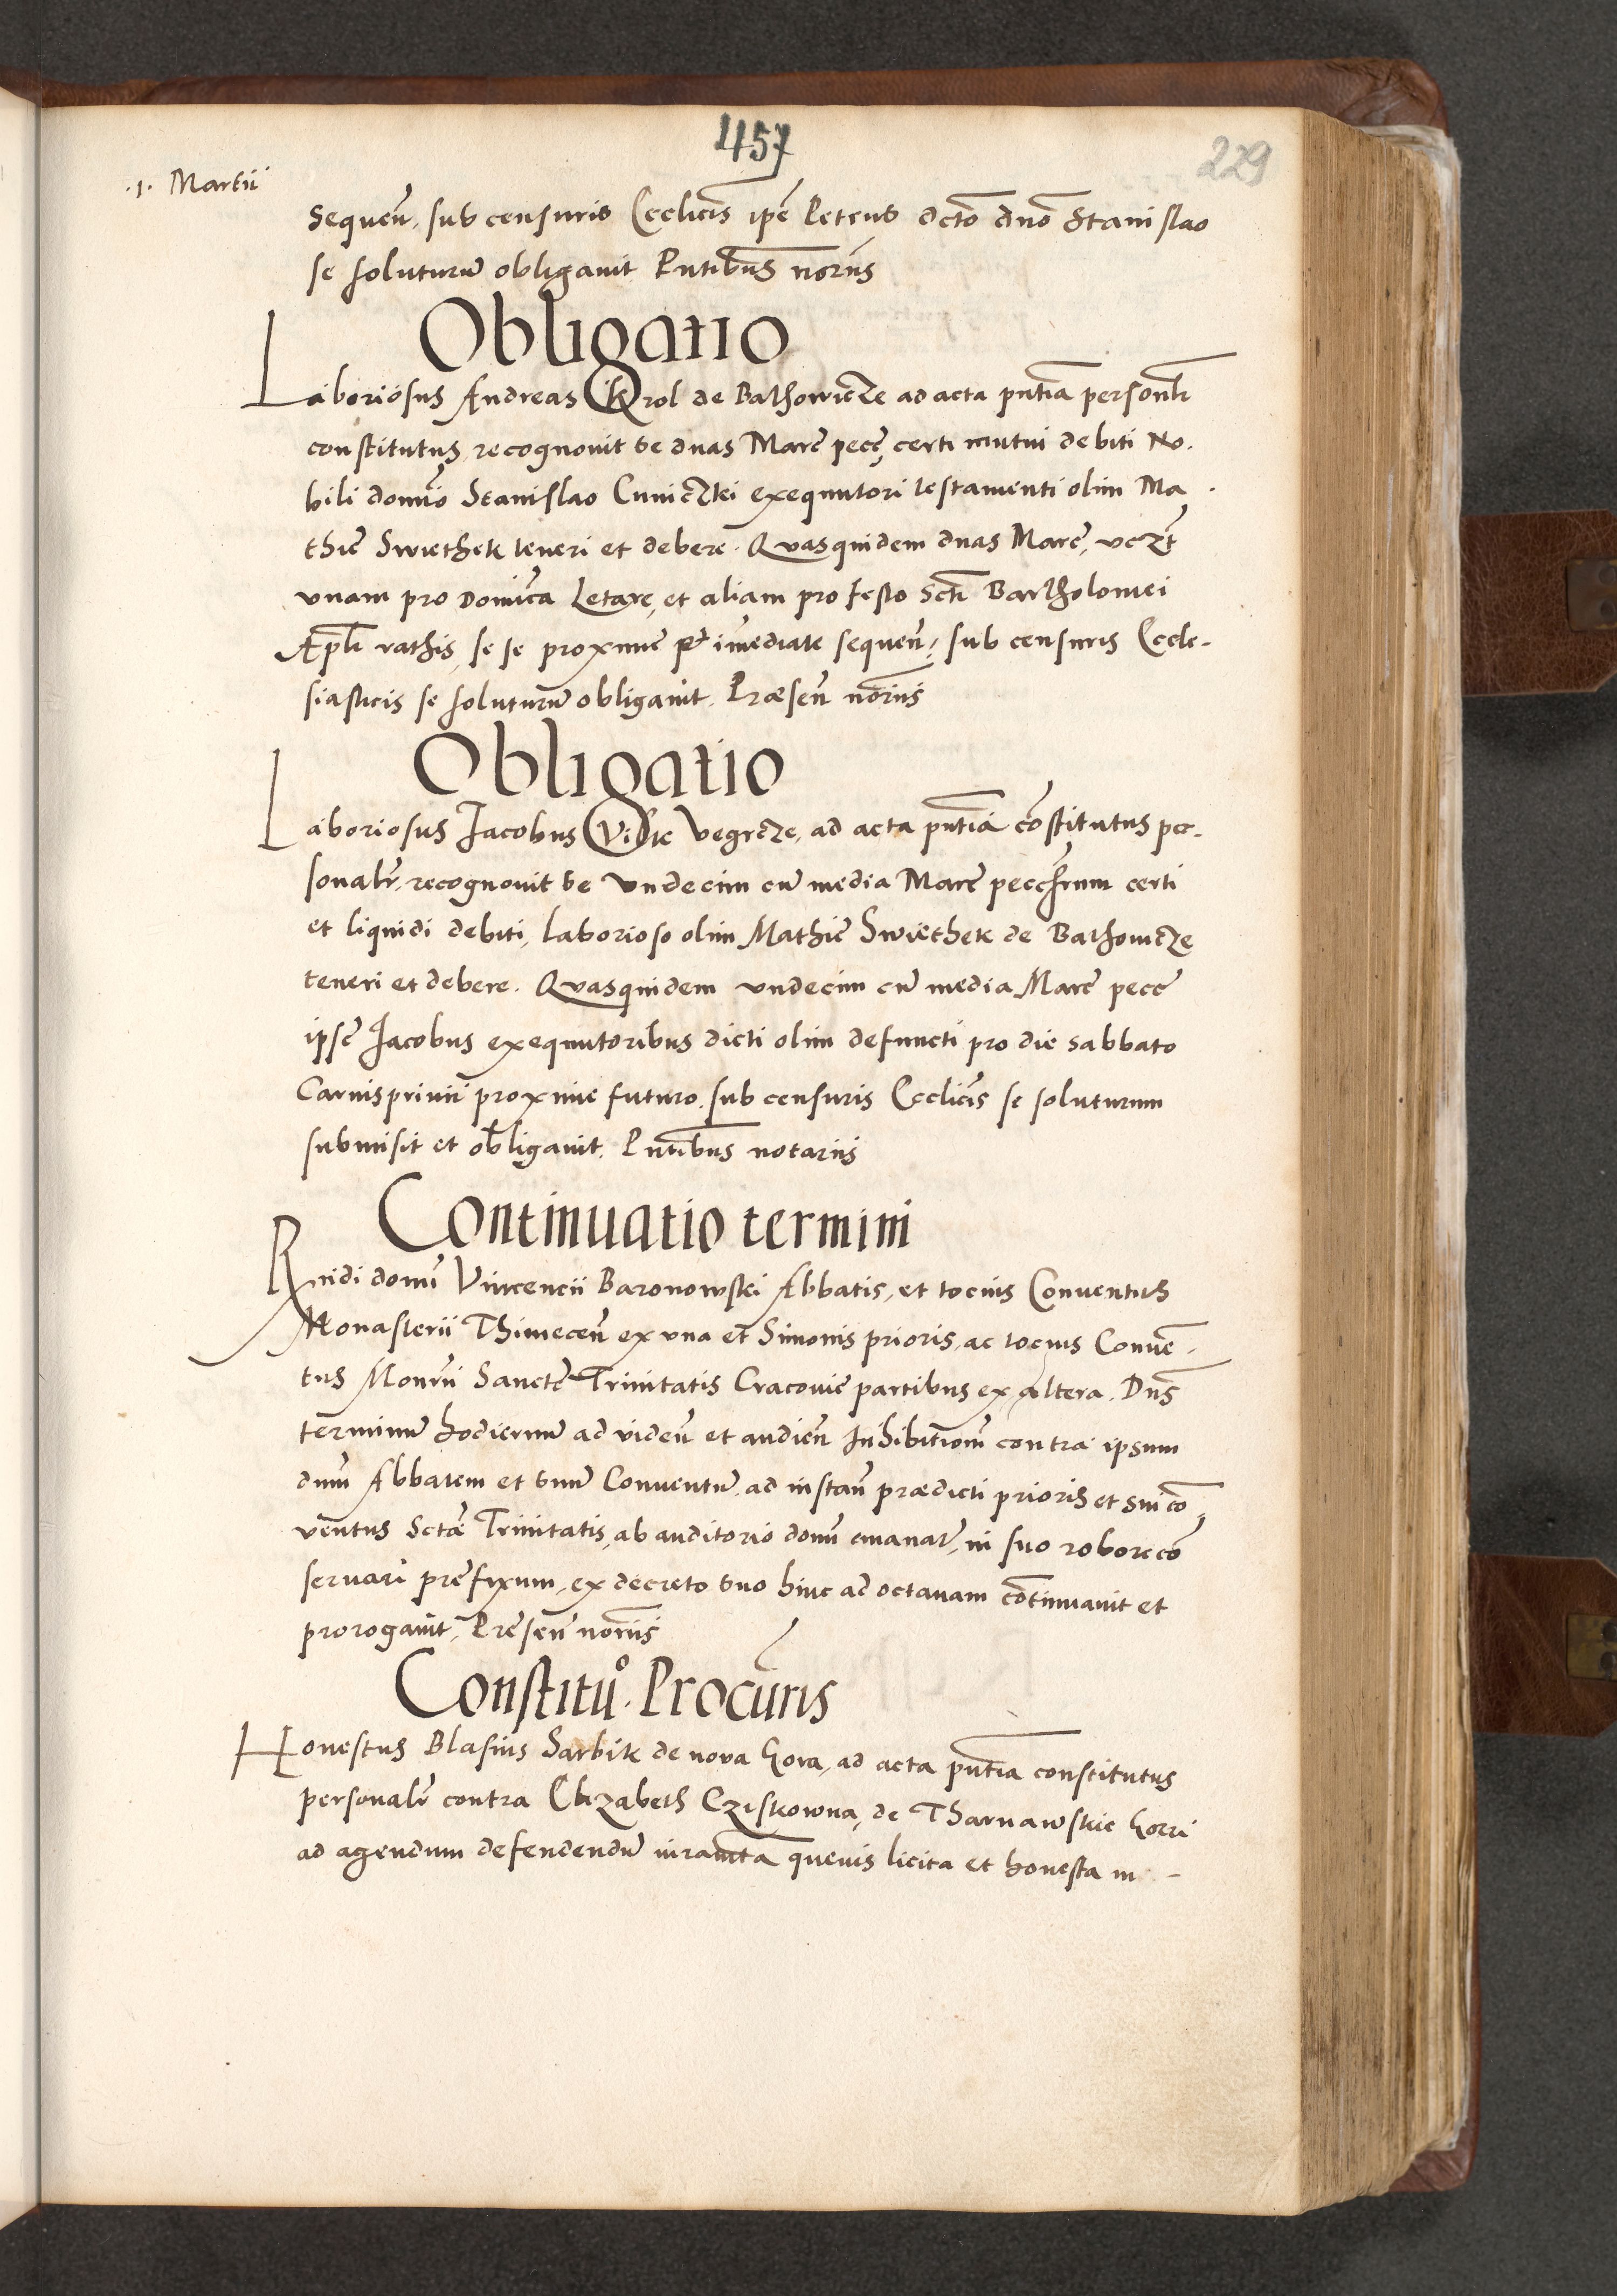 457
229
.1. Martii
Sequen̄. sub censuris Eccliсis ipse Petrus dcto dno Stanislao
se soluturū obligavit Pntibus norijs
Obligatio
Laboriosus Andreas Krol de Bathowicze ad acta pntia personlr
constitutus recognovit se duas Marc pecę certi mutui debiti No.
bili domino Stanislao Cuniczki exequutori testamenti olim Ma
thie Swiethek teneri et debere. Quasquidem duas Marc, vczt
unam pro Dominca Letare, et aliam pro festo Scti Bartholomei
Apli rathis, se se proxime et imediate sequen̄, sub censuris Eccle-
siasticis se soluturū obligavit. Præsen̄ norijs
Obligatio
Laboriosus Jacobus de Vegrcze, ad acta pntia cōstitutus per-
sonalr, recognovit se Undecim cū media Marc certi
et liquidi debiti, laborioso olim Mathie Swiethek de Bathowicze
teneri et debere. Quasquidem undecim cū media Marc pecc
ipse Jacobus exequutoribus dicti olim defuncti pro die sabbato
Carnisprivii proxime futuro, sub censuris Ecclicis se soluturum
submisit et obligavit. Pntibus notarijs
Continuatio termini
Rndi domi Vincencii Baronowski Abbatis, et tocius Conventus
Monasterii Thinecen̄ ex una et Simonis prioris, ac tocius Conven-
tus Monrii Sancte Trinitatis Cracovie partibus ex altera. Dns
terminū hodiernū ad viden̄ et audien̄ Inhibitionem contra ipsum
dnm Abbatem et suū Conventū, ad instan̄ prædicti prioris et sui cō
ventus Sctæ Trinitatis, ab auditorio domi emanat, in suo robore cō
servari prefixum, ex decreto suo hinc ad octavam cōtinuavit et
prorogavit, Presen̄ norijs
Constitu° Procuris
Honestus Blasius Sarbik de nova Gora, ad acta pntia constitutus
personalr contra Elizabeth Cziskowna, de Tharnawskie Gorri
ad agendum defendendū iuramta quevis licita et honesta in